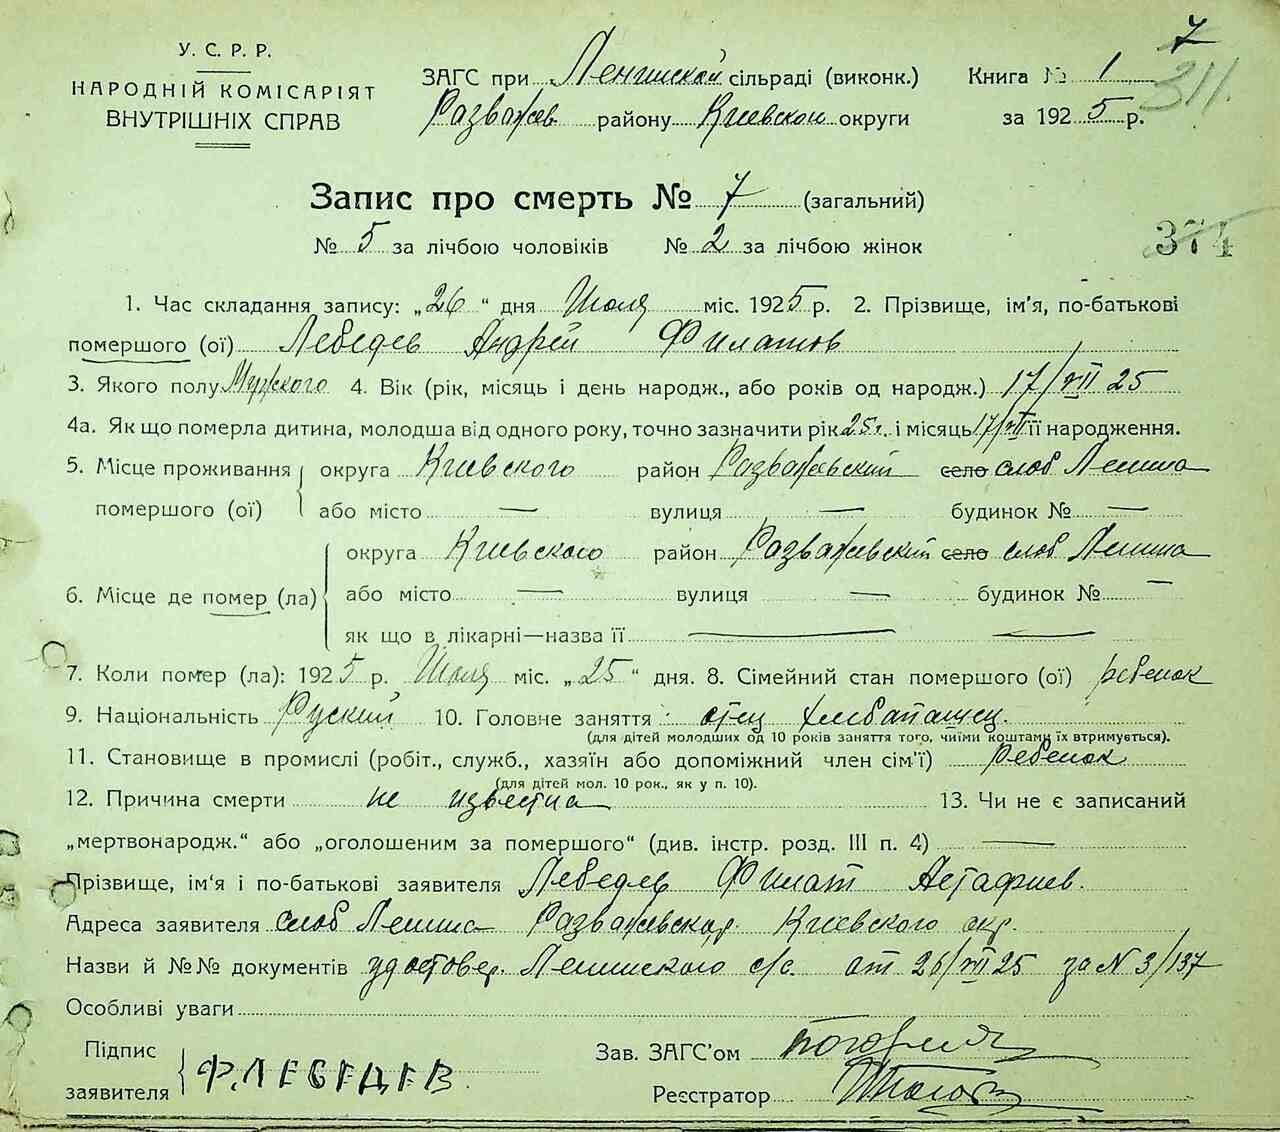 7
311.
У. С. Р. Р.
НАРОДНІЙ КОМІСАРІЯТ
ВНУТРІШНІХ СПРАВ
ЗАГС при Ленинской сільраді (виконк.)
Разважев району Киевской округи
Книга № 1
за 1925 р.
Запис про смерть № 7 (загальний)
№ 5 за лічбою чоловіків № 2 за лічбою жінок
374
1. Час складання запису: „26“ дня Июля міс. 1925 р. 2. Прізвище, ім'я, по-батькові
помершого (ої) Лебедев Андрей Филатов
3. Якого полу Мужского 4. Вік (рік, місяць і день народж., або років од народж.) 17/VII 25
4а. Як що померла дитина, молодша від одного року, точно зазначити рік 25 г. і місяць 17/VII її народження.
5. Місце проживання помершого (ої) округа Киевского район Разважевский село слоб Ленина
або місто — вулиця — будинок № —
6. Місце де помер (ла) округа Киевского район Разважевский село слоб Ленина
або місто — вулиця — будинок № —
як що в лікарні—назва її — —
7. Коли помер (ла): 1925 р. Июля міс. „25“ дня. 8. Сімейний стан помершого (ої) ребенок
9. Національність Руский 10. Головне заняття: отец хлебапашец.
(для дітей молодших од 10 років заняття того, чиїми коштами їх втримується).
11. Становище в промислі (робіт., служб., хазяїн або допоміжний член сім'ї) ребенок
(для дітей мол. 10 рок., як у п. 10).
12. Причина смерти не известна 13. Чи не є записаний
„мертвонародж.“ або „оголошеним за помершого“ (див. інстр. розд. III п. 4) —
Прізвище, ім'я і по-батькові заявителя Лебедев Филат Астафиев.
Адреса заявителя слоб Ленина Разважевскаг. Киевского окр.
Назви й №№ документів удостовер. Ленинского с/с. от 26/VII 25 за N 3/137
Особливі уваги
Підпис заявителя Ф. ЛЕБЕДЕВ
Зав. ЗАГС'ом
Реєстратор